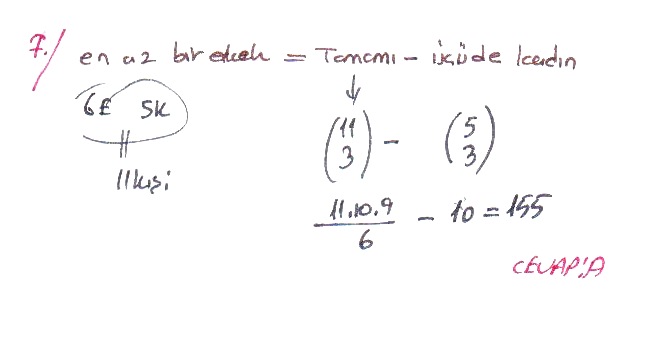 7./ en az bir erkek = Tamamı - üçüde kadın
6E 5K
11 kişi
(11 3) - (5 3)
11.10.9 / 6 - 10 = 155
CEVAP: A